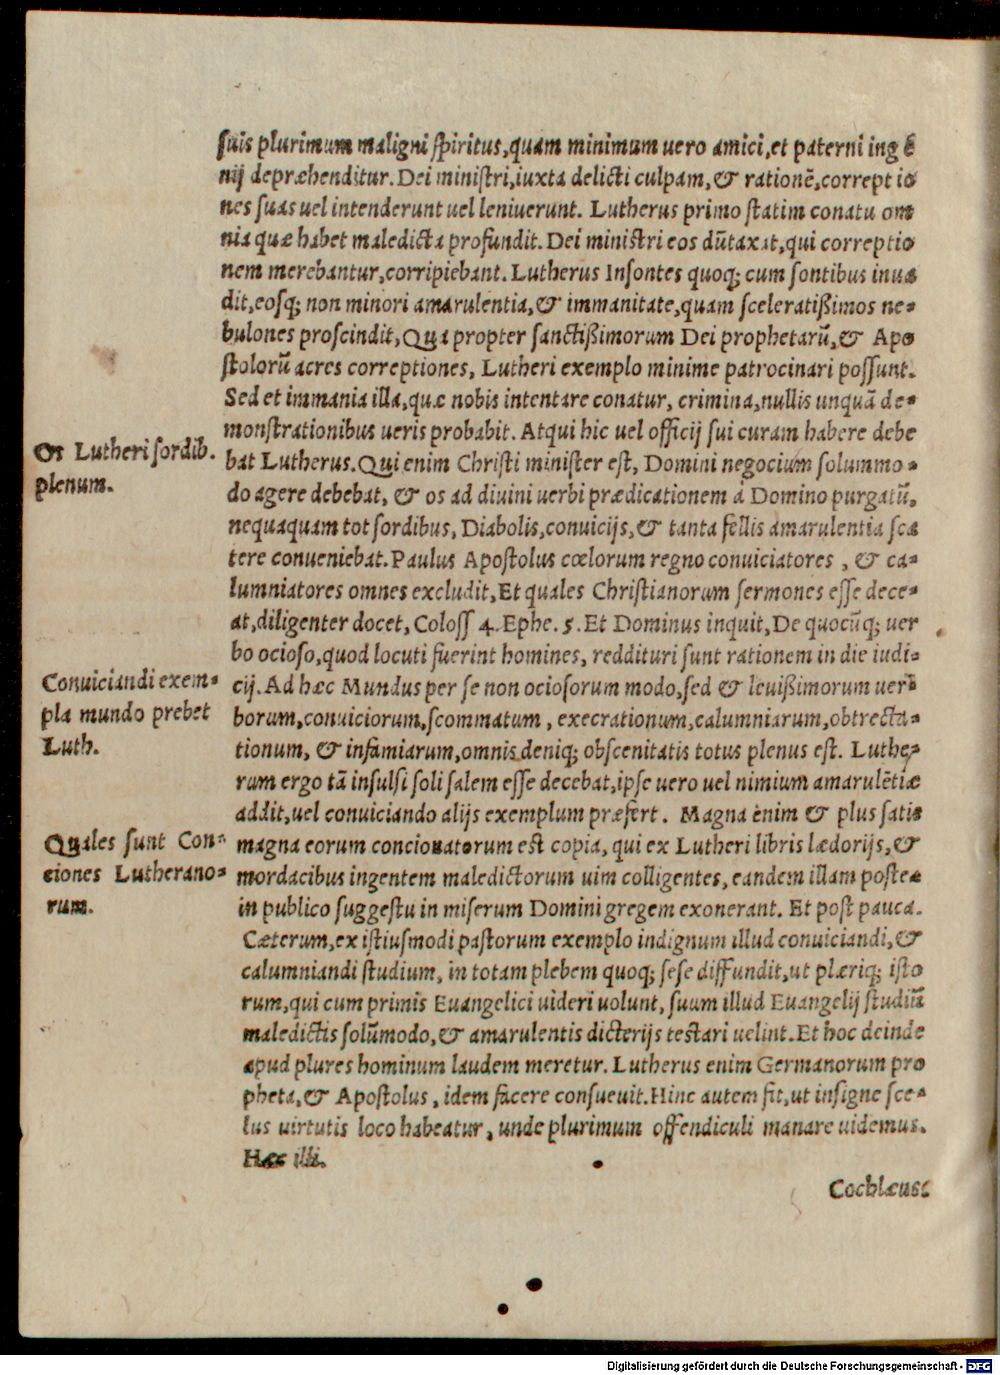 suis plurimum maligni spiritus,quam minimum uero amici,et paterni ingē
nij depræhenditur.Dei ministri,iuxta delicti culpam,& rationē,correptio
nes suas uel intenderunt uel leniuerunt. Lutherus primo statim conatu om
nia quæ habet maledicta profundit.Dei ministri eos dūtaxat,qui correptio
nem merebantur,corripiebant.Lutherus Insontes quoq; cum sontibus inua
dit,eosq; non minori amarulentia,& immanitate,quam sceleratißimos ne-
bulones proscindit,Qua propter sanctißimorum Dei prophetarū,& Apo
stolorū acres correptiones, Lutheri exemplo minime patrocinari possunt.
Sed et immania illa,quæ nobis intentare conatur, crimina,nullis unquā de-
monstrationibus ueris probabit. Atqui hic uel officij sui curam habere debe
Os Lutheri sordib.
plenum.
bat Lutherus.Qui enim Christi minister est, Domini negocium solummo-
do agere debebat, & os ad diuini uerbi prædicationem á Domino purgatū,
nequaquam tot sordibus, Diabolis,conuicijs,& tanta fellis amarulentia sca
tere conueniebat.Paulus Apostolus cœlorum regno conuiciatores , & ca-
lumniatores omnes excludit,Et quales Christianorum sermones esse dece-
at,diligenter docet, Coloss 4. Ephe. 5. Et Dominus inquit,De quocūq; uer
bo ocioso,quod locuti fuerint homines, reddituri sunt rationem in die iudi-
Conuiciandi exem-
pla mundo prebet
Luth.
cij.Ad hæc Mundus per se non ociosorum modo,sed & leuißimorum uer
borum,conuiciorum,scommatum , execrationum,calumniarum,obtrecta-
tionum, & infamiarum,omnis deniq; obscenitatis totus plenus est. Luthe,
rum ergo tā insulsi soli salem esse decebat,ipse uero uel nimium amarulētiæ
addit,uel conuiciando alijs exemplum præfert. Magna enim & plus satis
Quales sunt Con-
ciones Lutherano-
rum.
magna eorum concionatorum est copia, qui ex Lutheri libris lædorijs,&
mordacibus ingentem maledictorum uim colligentes, eandem illam postea
in publico suggestu in miserum Domini gregem exonerant. Et post pauca.
Cæterum,ex istiusmodi pastorum exemplo indignum illud conuiciandi,&
calumniandi studium, in totam plebem quoq; sese diffundit,ut plæriq; isto
rum,qui cum primis Euangelici uideri uolunt, suum illud Euangelij studiū
maledictis solūmodo,& amarulentis dicterijs testari uelint.Et hoc deinde
apud plures hominum laudem meretur. Lutherus enim Germanorum pro
pheta,& Apostolus, idem facere consueuit.Hinc autem fit,ut insigne sce-
lus uirtutis loco habeatur, unde plurimum offendiculi manare uidemus.
Hæc illi.
Cochlæus:
Digitalisierung gefördert durch die Deutsche Forschungsgemeinschaft - DFG